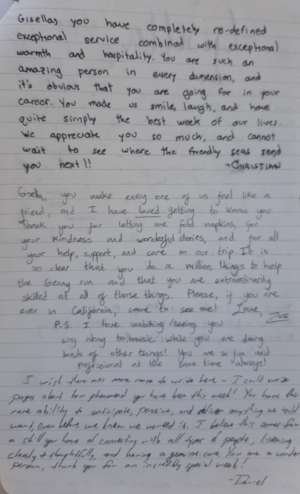 Gisella, you have completely re-defined
exceptional service combined with exceptional
warmth and hospitality. You are such an
amazing person in every dimension, and
it's obvious that you are going far in your
career. You made us smile, laugh, and have
quite simply the best week of our lives.
We appreciate you so much, and cannot
wait to see where the friendly seas send
you next!! -CHRISTIAN
Gisella, you make every one of us feel like a
friend, and I have loved getting to know you
Thank you for letting me fold napkins, for
your kindness and wonderful stories, and for all
your help, support, and care on our trip. It is
so clear that you do a million things to help
the ferry run and that you are extraordinarily
skilled at all of those things. Please, if you are
ever in California, come to see me! Love,
P.S. I love watching/seeing you
sing along to music while you are doing
lots of other things! You are so fun and
professional at the same time always!
I wish there was more room to write here - I could write
pages about how phenomenal you have been this week! You have the
rare ability to anticipate, perceive, and deliver anything we could
want, even before we knew we wanted it. I believe this comes from
a skill you have at connecting with all types of people, listening
closely & thoughtfully, and having a genuine care. You are a wonderful
person, thank you for an incredibly special week!
-Daniel